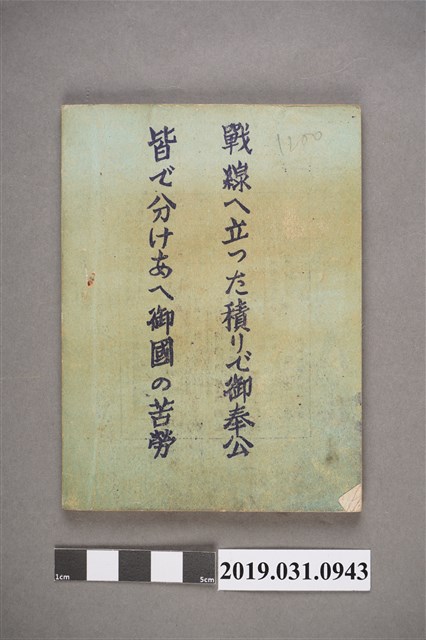 戰線へ立つた積りで御奉公
皆で分けあへ御國の苦勞
1200
1cm
5cm
2019.031.0943